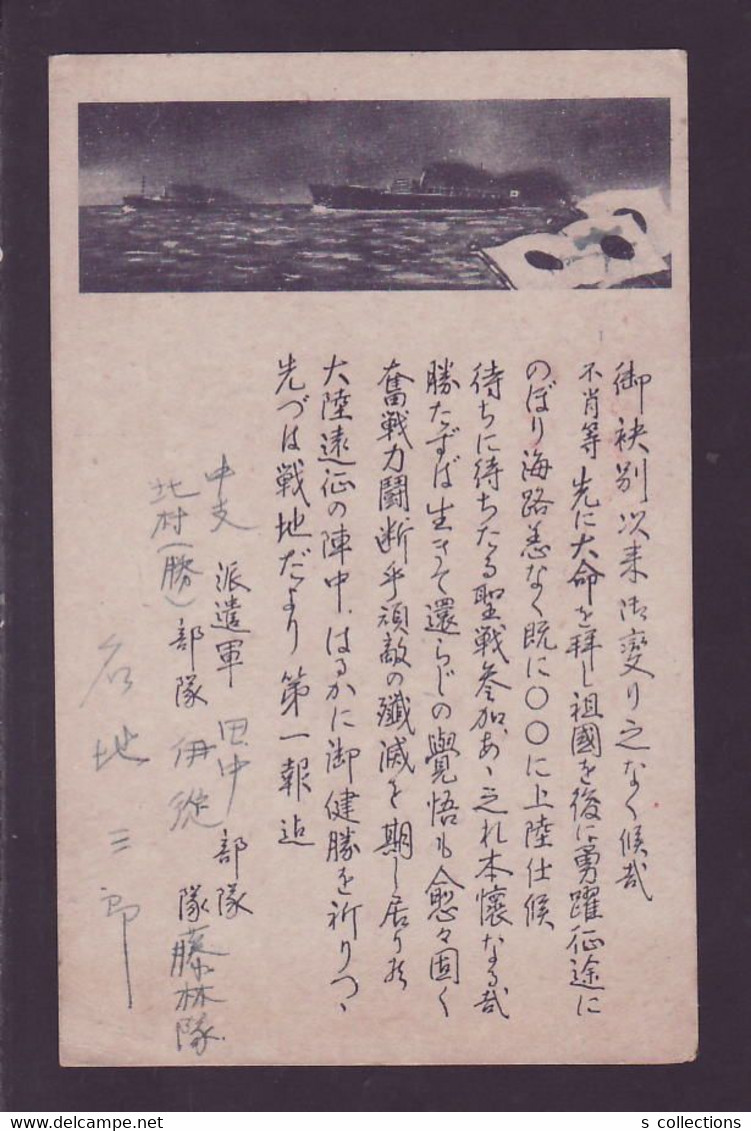 御袂別以来御変り之なく候哉
不肖等先に大命を拝し祖國を後に勇躍征途に
のぼり海路恙なく既に〇〇に上陸仕候
待ちに待ちたる聖戦参加、あゝ之れ本懐なる哉
勝たずば生きて還らじの覺悟も愈々固く
奮戦力闘断乎頑敵の殲滅を期し居り候
大陸遠征の陣中、はるかに御健勝を祈りつゝ
先づは戦地だより第一報迄
中支派遣軍 田中部隊
北村(勝)部隊 伊 隊藤林隊
名地三郎
s collections